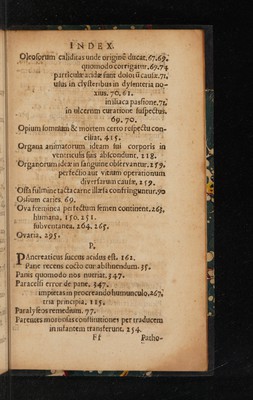 INDEX.
Oleosorum caliditas unde originẽ ducat. 67.69.
quomodo corrigatur. 69.74
particulæ acidæ sunt dolorũ causæ. 71.
usus in clysteribus in dysenteria no-
xius. 70, 61.
in iliaca passione. 71.
in ulcerum curatione suspectus.
69. 70.
Opium somnium & mortem certo respectu con-
ciliat. 415.
Organa animatorum ideam sui corporis in
ventriculis suis abscondunt. 218.
Organorum ideæ in sanguine observantur. 259.
perfectio aut vitium operationum
diversarum causa, 259.
Ossa fulmine tacta carne illæsa confringuntur. 90
Ossium caries. 69.
Ova fœminea perfectum semen continent. 263.
humana, 150. 251.
subventanea. 264. 265.
Ovaria. 295.
P.
PAncreaticus succus acidus est. 162.
Pane recens cocto cur abstinendum. 35.
Panis quomodo nos nutriat. 347.
Paracelsi error de pane. 347.
impietas in procreando humunculo. 267.
tria principia. 115.
Paralyseos remedium. 77.
Parentes morbosas constitutiones per traducem
in infantem transferunt. 254.
Ff
Patho-